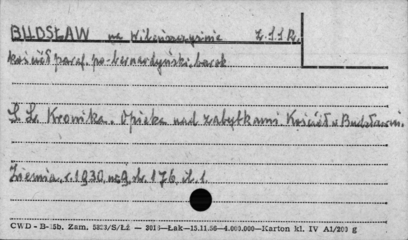 BUDSŁAW na Wileńszczyźnie Z.S.S.R.
kościół paraf. po-bernardyński, barok
S. L. Kronika. Opieka nad zabytkami. Kościół w Budsławiu.
Ziemia, r. 1930, nr 9, str. 176, il. 1.
CWD - B-35b. Zam. 5828/S/Łż — 3013—Łak—15.11.56—4.000.000—Karton kl. IV A1/200 g